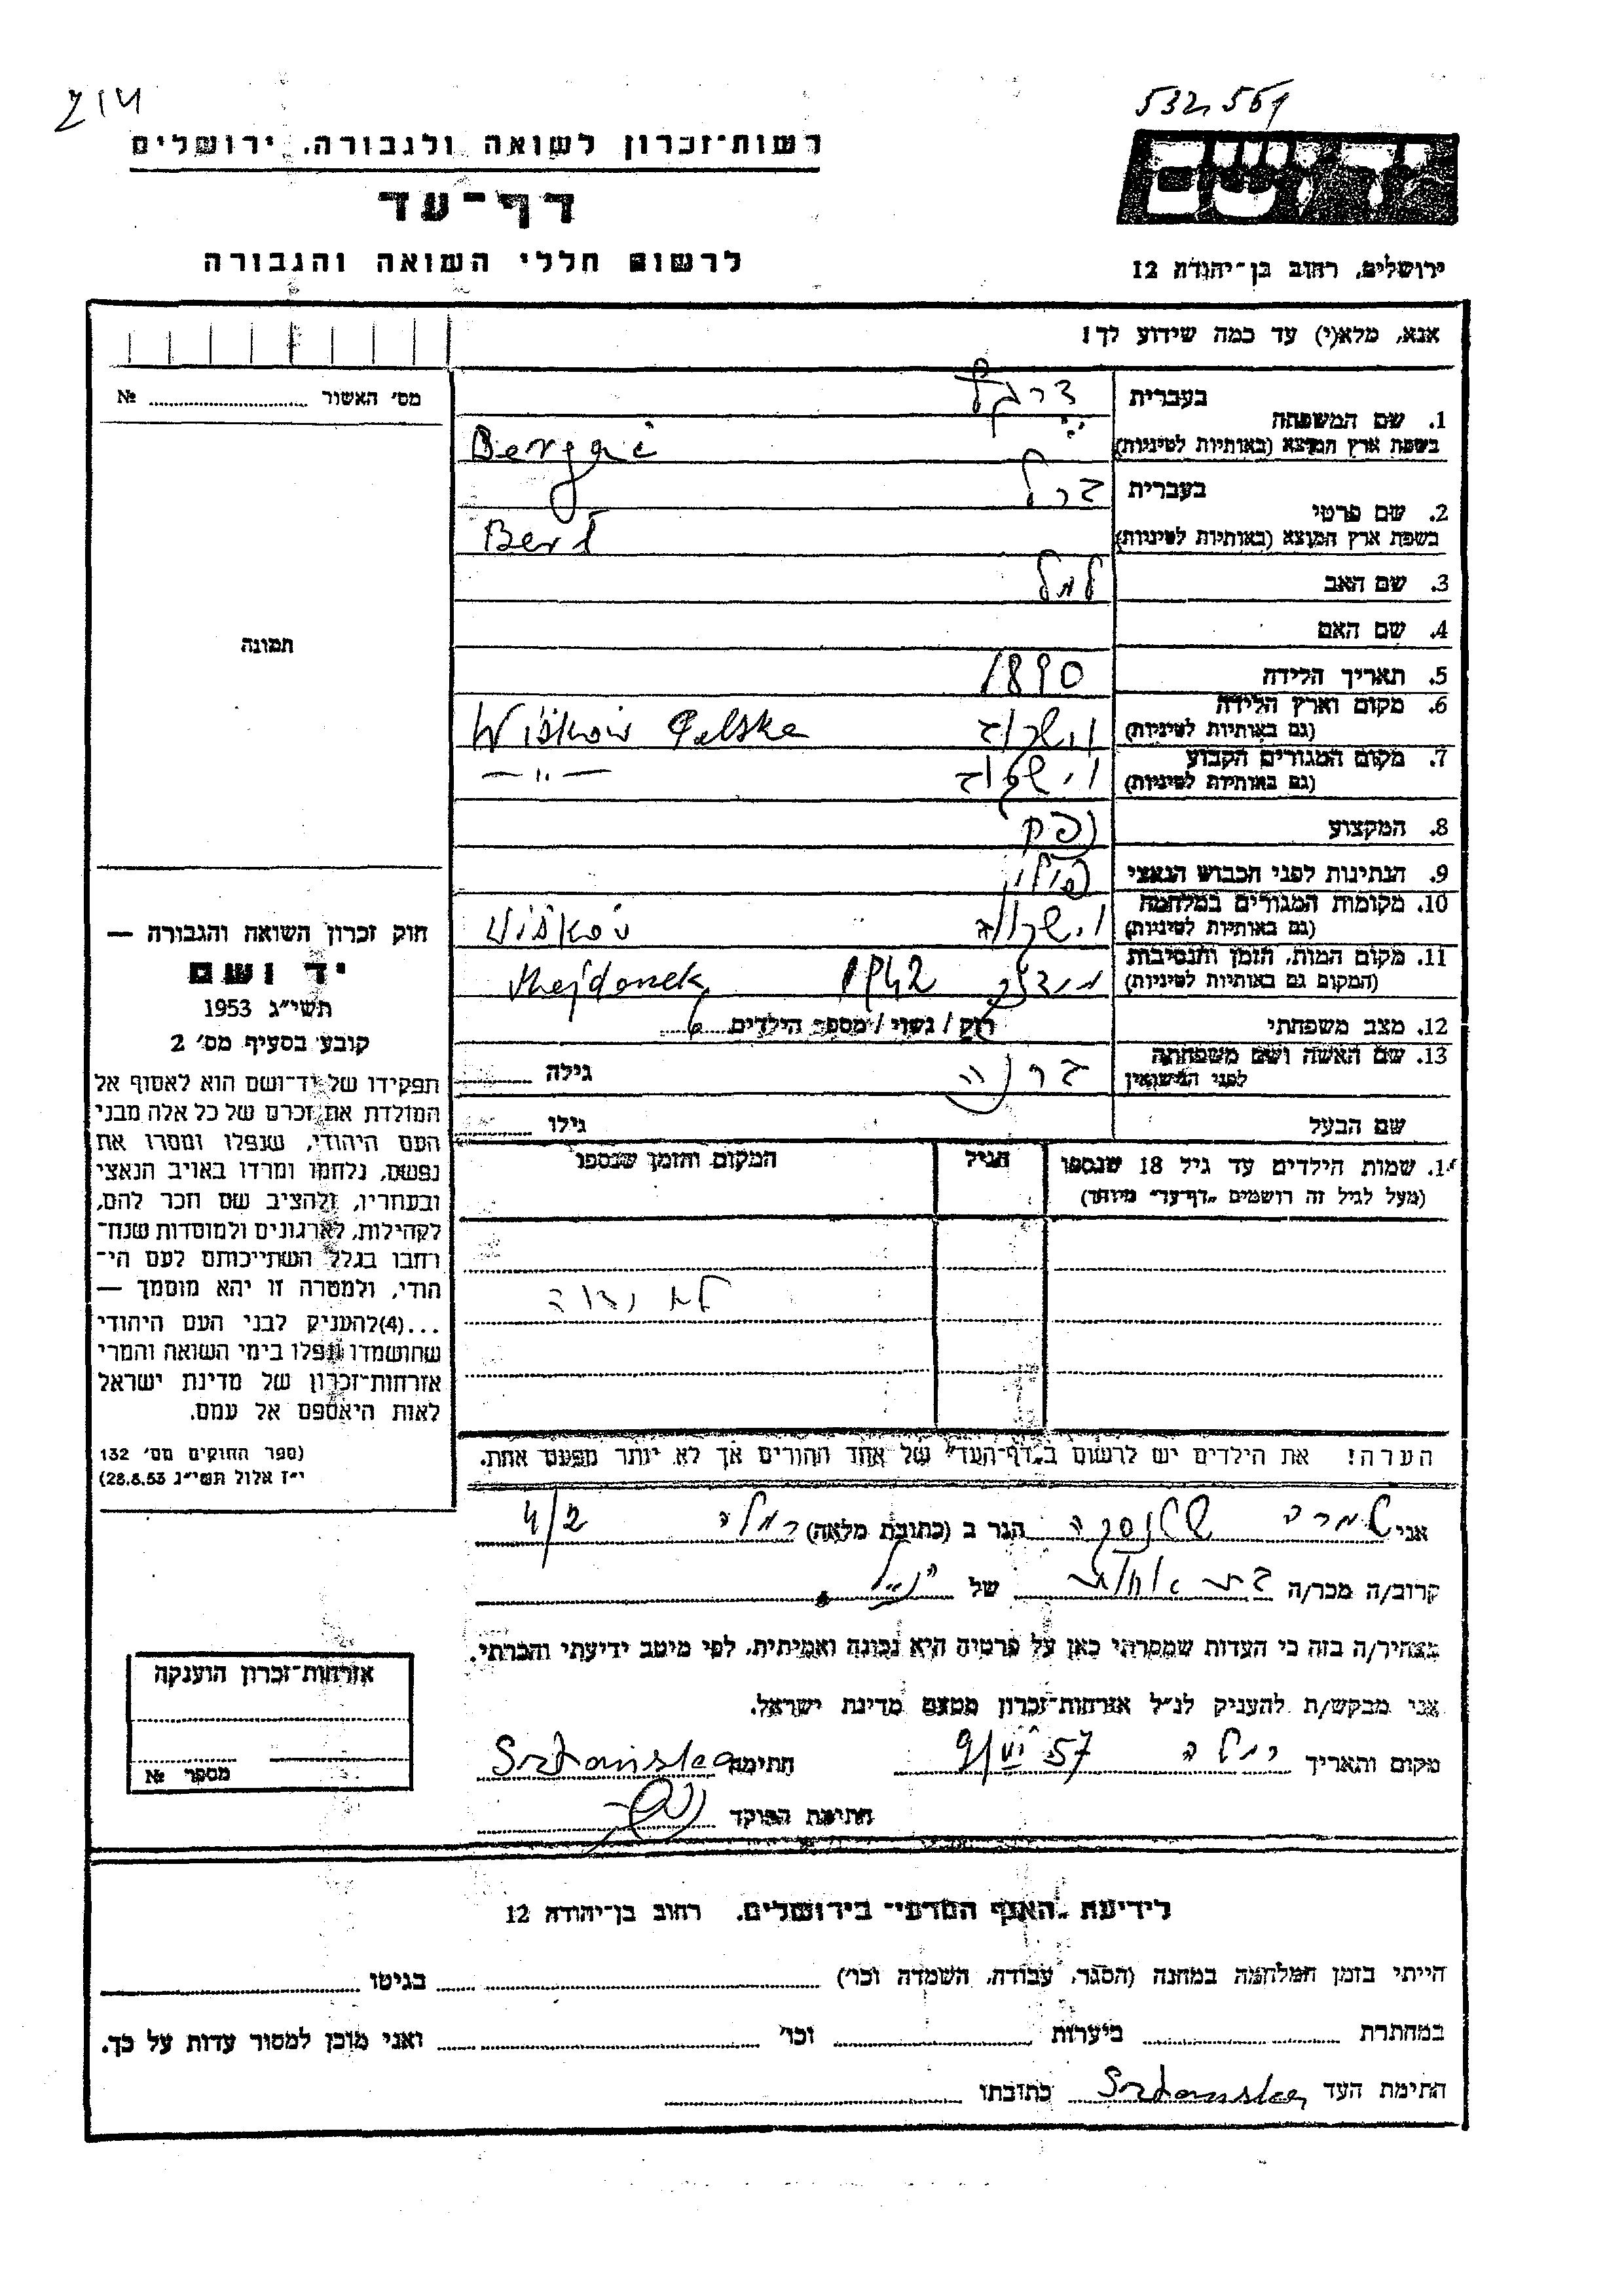 532,561
רשות־זכרון לשואה ולגבורה, ירושלים
יד ושם
דף־עד
לרשום חללי השואה והגבורה
ירושלים, רחוב בן־יהודה 12
אנא, מלא(י) עד כמה שידוע לך!
מס' האשור № 
בעברית
1. שם המשפחה
בשפת ארץ המוצא (באותיות לטיניות)
בעברית ברל
2. שם פרטי
בשפת ארץ המוצא (באותיות לטיניות) Berl
3. שם האב
4. שם האם
תמונה
5. תאריך הלידה 1890
6. מקום וארץ הלידה
(גם באותיות לטיניות) Wiškow Polska
7. מקום המגורים הקבוע
(גם באותיות לטיניות) —〃—
8. המקצוע
9. הנתינות לפני הכבוש הנאצי
10. מקומות המגורים במלחמה
(גם באותיות לטיניות) Viškov
11. מקום המות, הזמן והנסיבות
(המקום גם באותיות לטיניות) 1942 Majdanek
12. מצב משפחתי רווק / נשוי / מספר הילדים 6
13. שם האשה ושם משפחתה
לפני הנישואין גילה
שם הבעל גילו
שמות הילדים עד גיל 18 שנספו הגיל המקום והזמן שנספו
(מעל לגיל זה רושמים „דף־עד” מיוחד)
הערה! את הילדים יש לרשום ב„דף־העד” של אחד ההורים אך לא יותר מפעם אחת.
חוק זכרון השואה והגבורה —
יד ושם
תשי״ג 1953
קובע בסעיף מס' 2
תפקידו של יד־ושם הוא לאסוף אל
המולדת את זכרם של כל אלה מבני
העם היהודי, שנפלו ומסרו את
נפשם, נלחמו ומרדו באויב הנאצי
ובעוזריו, ולהציב שם וזכר להם,
לקהילות, לארגונים ולמוסדות שנח־
רבו בגלל השתייכותם לעם הי־
הודי, ולמטרה זו יהא מוסמך —
...(4) להעניק לבני העם היהודי
שהושמדו ונפלו בימי השואה והמרי
אזרחות־זכרון של מדינת ישראל
לאות היאספם אל עמם.
(ספר החוקים מס' 132
י״ז אלול תשי״ג 28.8.53)
אני הגר ב (כתובת מלאה) רמלה 4/2
קרוב/ה מכר/ה של הנ״ל
מצהיר/ה בזה כי העדות שמסרתי כאן על פרטיה היא נכונה ואמיתית, לפי מיטב ידיעתי והכרתי.
אני מבקש/ת להעניק לנ״ל אזרחות־זכרון מטעם מדינת ישראל.
מקום ותאריך רמלה 9/VI 57 חתימה
חתימת הפוקד
אזרחות־זכרון הוענקה
מספר №
לידיעת „האגף המדעי” בירושלים, רחוב בן־יהודה 12
הייתי בזמן המלחמה במחנה (הסגר, עבודה, השמדה וכו') בגיטו
במחתרת ביערות וכו' ואני מוכן למסור עדות על כך.
חתימת העד כתובתו